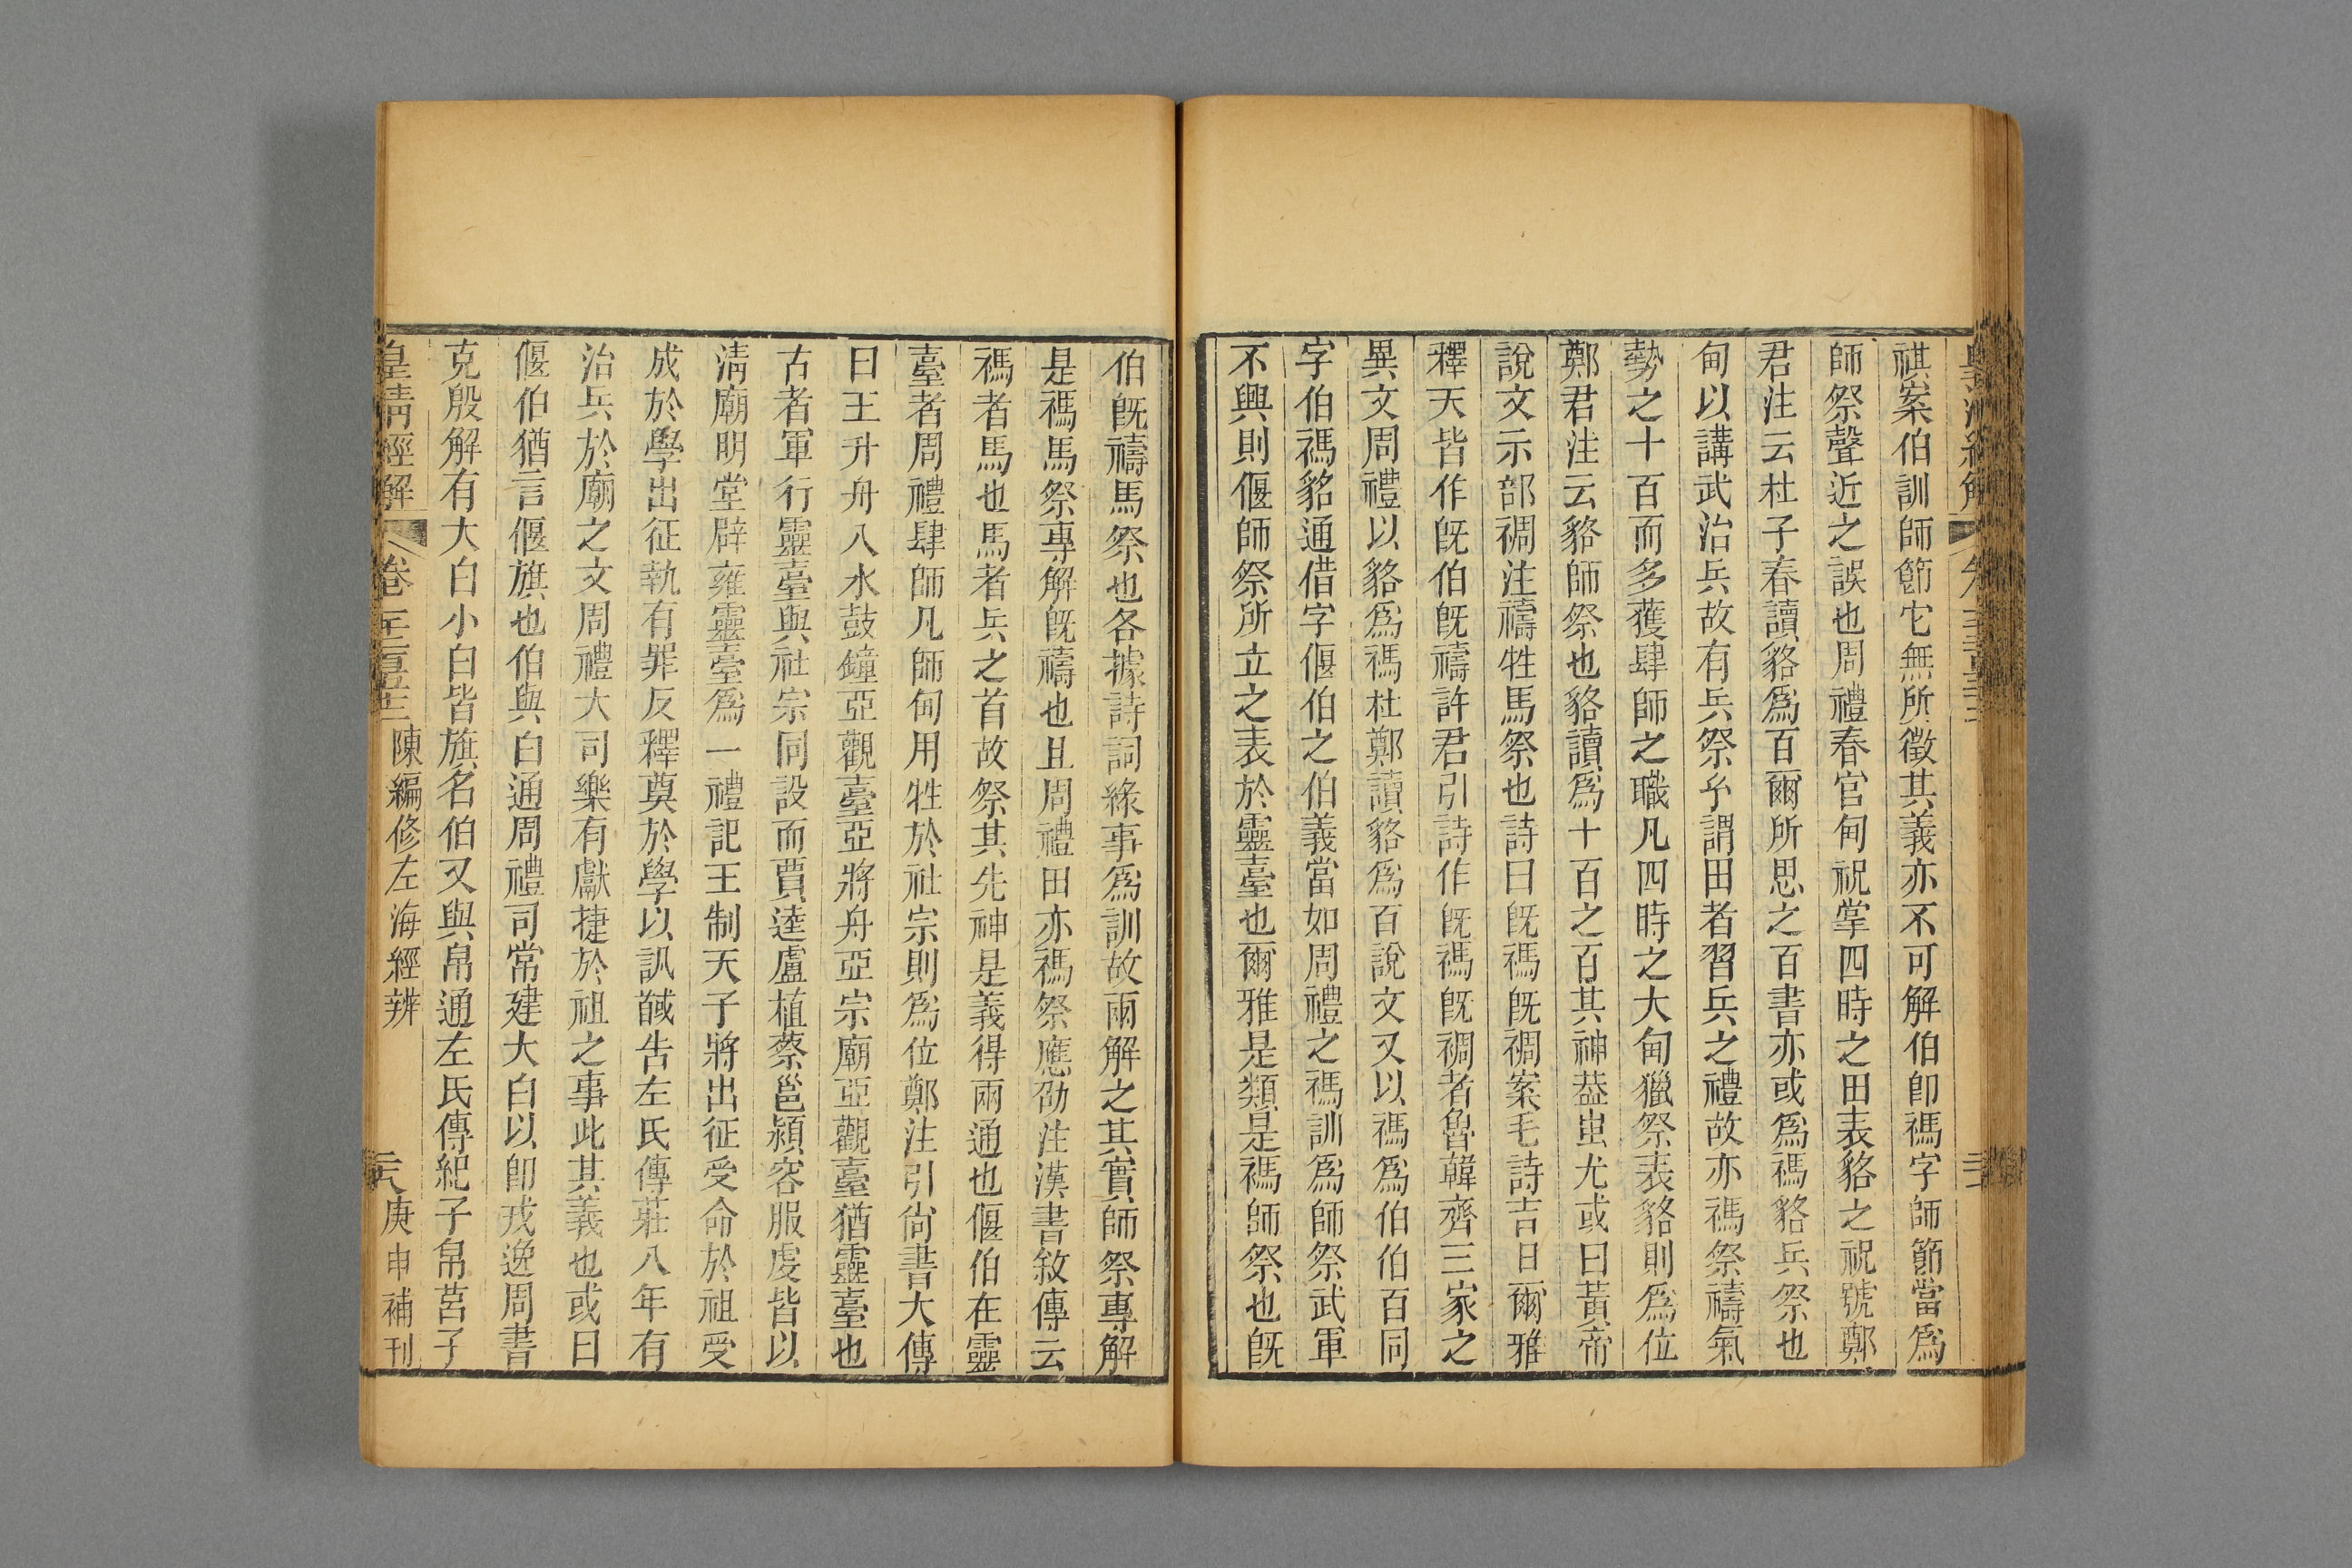 祺案伯訓師節它無所徵其義亦不可解伯卽禡字師節當爲
師祭聲近之誤也周禮春官甸祝掌四時之田表貉之祝號鄭
君注云杜子春讀貉爲百爾所思之百書亦或爲禡貉兵祭也
甸以講武治兵故有兵祭乎謂田者習兵之禮故亦禡祭禱氣
勢之十百而多獲肆師之職凡四時之大甸獵祭表貉則爲位
鄭君注云貉師祭也貉讀爲十百之百其神葢蚩尤或曰黃帝
說文示部禂注禱牲馬祭也詩曰旣禡旣禂案毛詩吉日爾雅
釋天皆作旣伯旣禱許君引詩作旣禡旣禂者魯韓齊三家之
異文周禮以貉爲禡杜鄭讀貉爲百說文又以禡爲伯伯百同
字伯禡貉通借字偃伯之伯義當如周禮之禡訓爲師祭武軍
不興則偃師祭所立之表於靈臺也爾雅是類是禡師祭也旣
伯旣禱馬祭也各據詩詞緣事爲訓故兩解之其實師祭專解
是禡馬祭專解旣禱也且周禮田亦禡祭應劭注漢書敘傳云
禡者馬也馬者兵之首故祭其先神是義得兩通也偃伯在靈
臺者周禮肆師凡師甸用牲於社宗則爲位鄭注引尙書大傳
曰王升舟入水鼓鐘亞觀臺亞將舟亞宗廟亞觀臺猶靈臺也
古者軍行靈臺與社宗同設而賈逵盧植蔡邕潁容服虔皆以
淸廟明堂辟雍靈臺爲一禮記王制天子將出征受命於祖受
成於學出征執有罪反釋奠於學以訊馘告左氏傳莊八年有
治兵於廟之文周禮大司樂有獻捷於祖之事此其義也或曰
偃伯猶言偃旗也伯與白通周禮司常建大白以卽戎逸周書
克殷解有大白小白皆旗名伯又與帛通左氏傳紀子帛莒子
皇淸經解 卷 陳編修左海經辨 庚申補刊